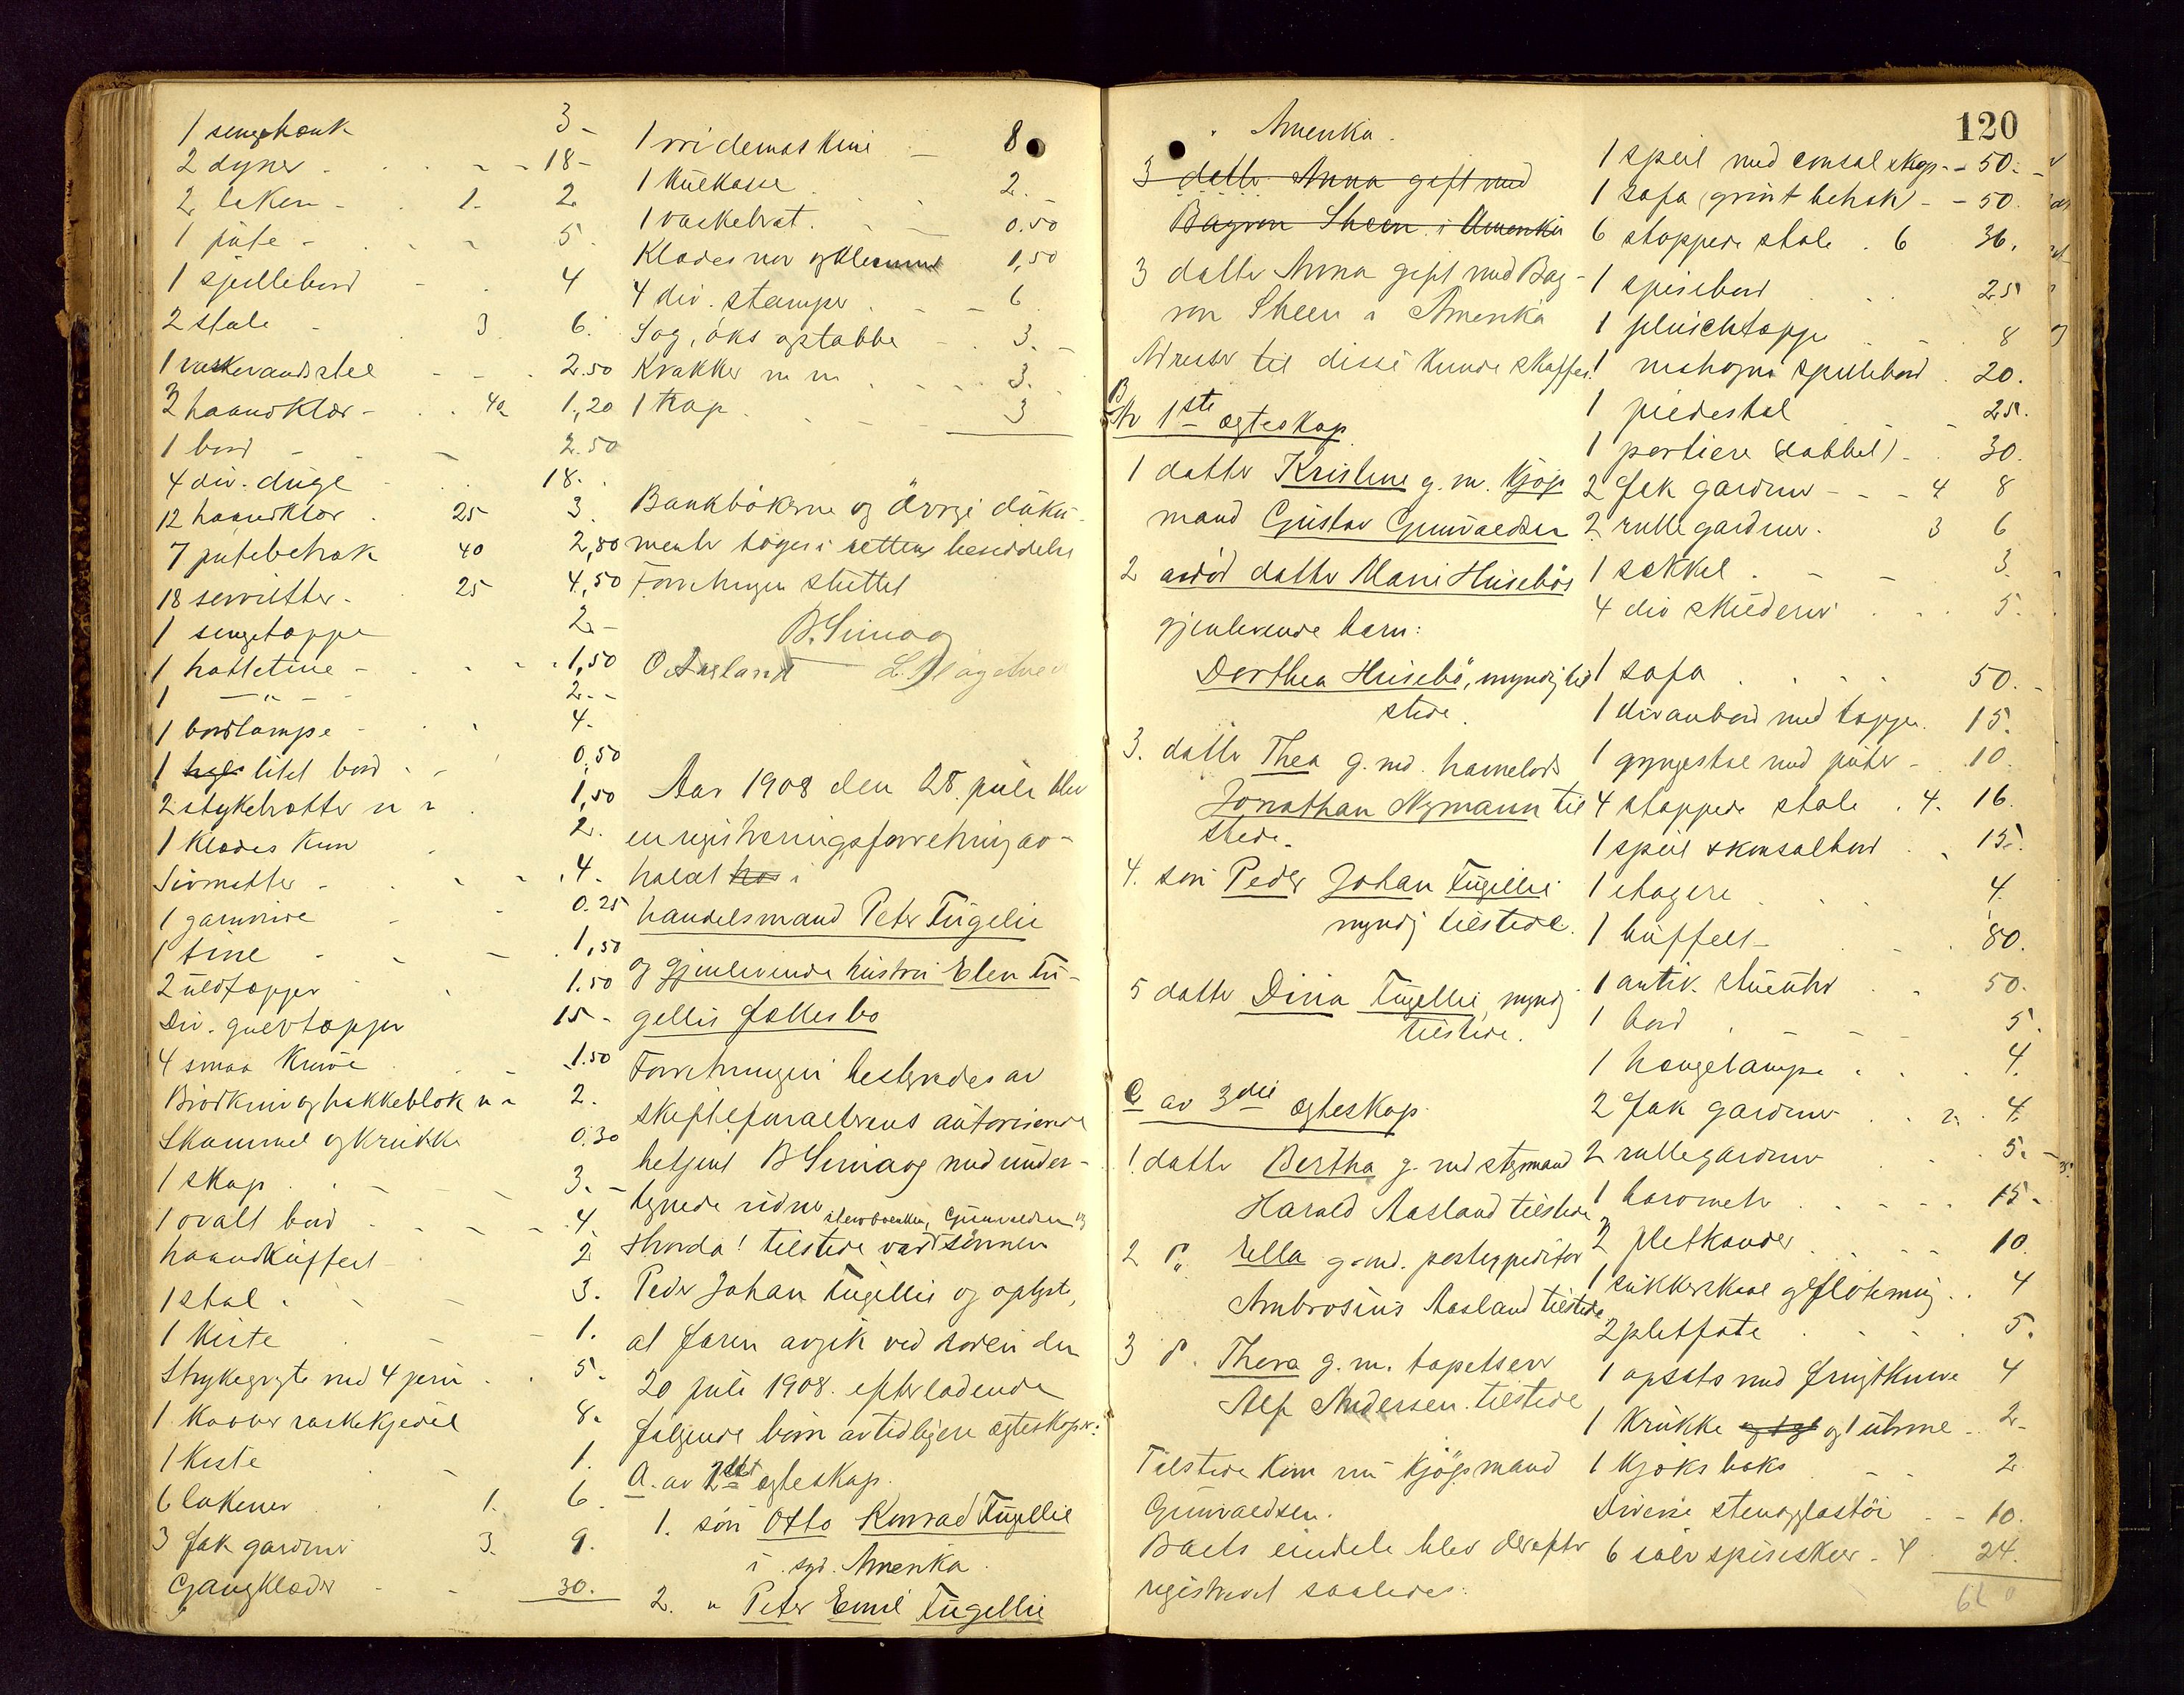 1 sengebænk 3 -
2 dyner . . - - 18 -
2 laken - . 1. 2
1 pute - . - - 5.
1 spillebord - . 4
2 stole - 3. 6.
1 vaskevandstel - - . 2.50
3 haandklær - . . 40 1,20
1 bord - - 2.50
4 div. duge - . . 18. .
12 haandklær . 25 3.
7 putebetræk 40 2,80
18 servietter - . 25 4,50
1 sengetæppe 2 -
1 hattetine - . . - . 1,50
1 — " — - 2. -
1 bordlampe - . . 4 -
1 litet bord . - . 0,50
2 stykebrætter 1,50
1 klædes kurv . 2.
Sivmatter - . - - . 4 -
1 garnvinde - - 0.25
1 tine - - - 1,50
2 uldtæpper . 1.50
Div. gulvtæpper 15 -
4 smaa knive . - 1.50
Brödkniv og hakkeblok 2.
Skammel og krukke 0.30
1 skap . . - - - 3. -
1 ovalt bord - . - - . 4
haandkuffert - 2
1 stol . - - 3.
1 kiste . - - 1.
Strykegryte med 4 jern . . 5 -
1 kobber vaskekjedel 8.
1 kiste - 1.
6 lakener . 1. 6.
3 fak gardiner 3. 9.
Gangklæder - - 30.
1 vridemaskine - 8
1 kulkasse . . 2.
1 vaskebræt . . - 0.50
Klædesnor og klemmer 1,50
4 div. stamper . - - 6
Sag, öks og stabbe - . 3. -
Krakker m m . . - . 3.
1 trap . . - - 3
Bankbökerne og övrige doku-
menter toges i rettens besiddelse
Forretningen sluttet
B. Simaog
O. Aasland
Aar 1908 den 28. juli blev
en registreringsforretning av-
holdt hos i
handelsmand Peter Tügellie
og gjenlevende hustru Elen Tü-
gellis fællesbo
Forretningen bestyredes av
skifteforvalterens autoriserede
betjent B Simaog med under-
tegnede vidner
Gunvaldsen og
Hvorda! tilstede var sönnen
Peder Johan Tügellie og oplyste,
at faren avgik ved döden den
20 juli 1908. efterladende
fölgende börn av tidligere egteskaper:
A. av 2det egteskap.
1. sön Otto Konrad Tügellie
i syd. Amerika.
2. " Peter Emil Tügellie
120
. Amerika.
3 datter Anna gift med
Bagron Skeen i Amerika
3 datter Anna gift med Bag-
ron Skeen i Amerika
Adresser til disse kunde skaffes.
B
Av 1ste egteskap
1 datter Kristine g. m. kjöp
mand Gustav Gunvaldsen
2 avdöd datter Marie Husebös
gjenlevende barn:
Dorthea Husebö, myndig til
stede.
3. datter Thea g. med.
Jonathan Nymann til
stede.
4. sön Peder Johan Tügellie
myndig tilstede.
5 datter Dina Tügellie, myndig
tilstede.
C av 3die egteskap.
1. datter Bertha g. med styrmand
Harald Aasland tilstede
2 d". Ella g. med. postexpeditör
Ambrosius Aasland tilstede
3 d". Thora g. m. tapetserer
Alf Andersen. tilstede
Tilstede kom nu kjöpmand
Gunvaldsen.
Boets eiendele blev derefter
registreret saaledes:
1 speil med consol skap - - 50. -
1 sofa (grönt betræk) - - 50.
6 stoppede stole . 6 36.
1 spisebord . . . 25
1 plüschtæppe . - . 8
1 mahogni spillebord . 20.
1 piedestal . . - 25.
1 portiere (dobbel) - . 30.
2 fak gardiner - - - 4 8
2 rullegardiner . 3 6
1 sokkel . - - 3.
4 div skilderier . . . 5.
1 sofa . . . . 50. -
1 divanbord med tæppe. 15.
1 gyngestol med puter - . 10.
4 stoppede stole . 4. 16.
1 speil & konsolbord . . 15.
1 etagere . . . 4.
1 buffett - - . 80.
1 antik. stueuhr . . 50.
1 bord . - - 5.
1 hængelampe . . . 4.
2 fak gardiner . . 2. . 4.
2 rullegardiner . . 5. -
1 barometer . - . - . 15 -
2 pletkander . . . - - 10.
1 sukkerskaal og flötemug . . 4
2 pletfate . . - . 5.
1 opsats med frugtknive 4
1 krukke og 1 urne . . 2 -
1 kjæks boks . - - 2
Diverse stenogglastöi . - 10.
6 sölv spiseskeer - 4 24.